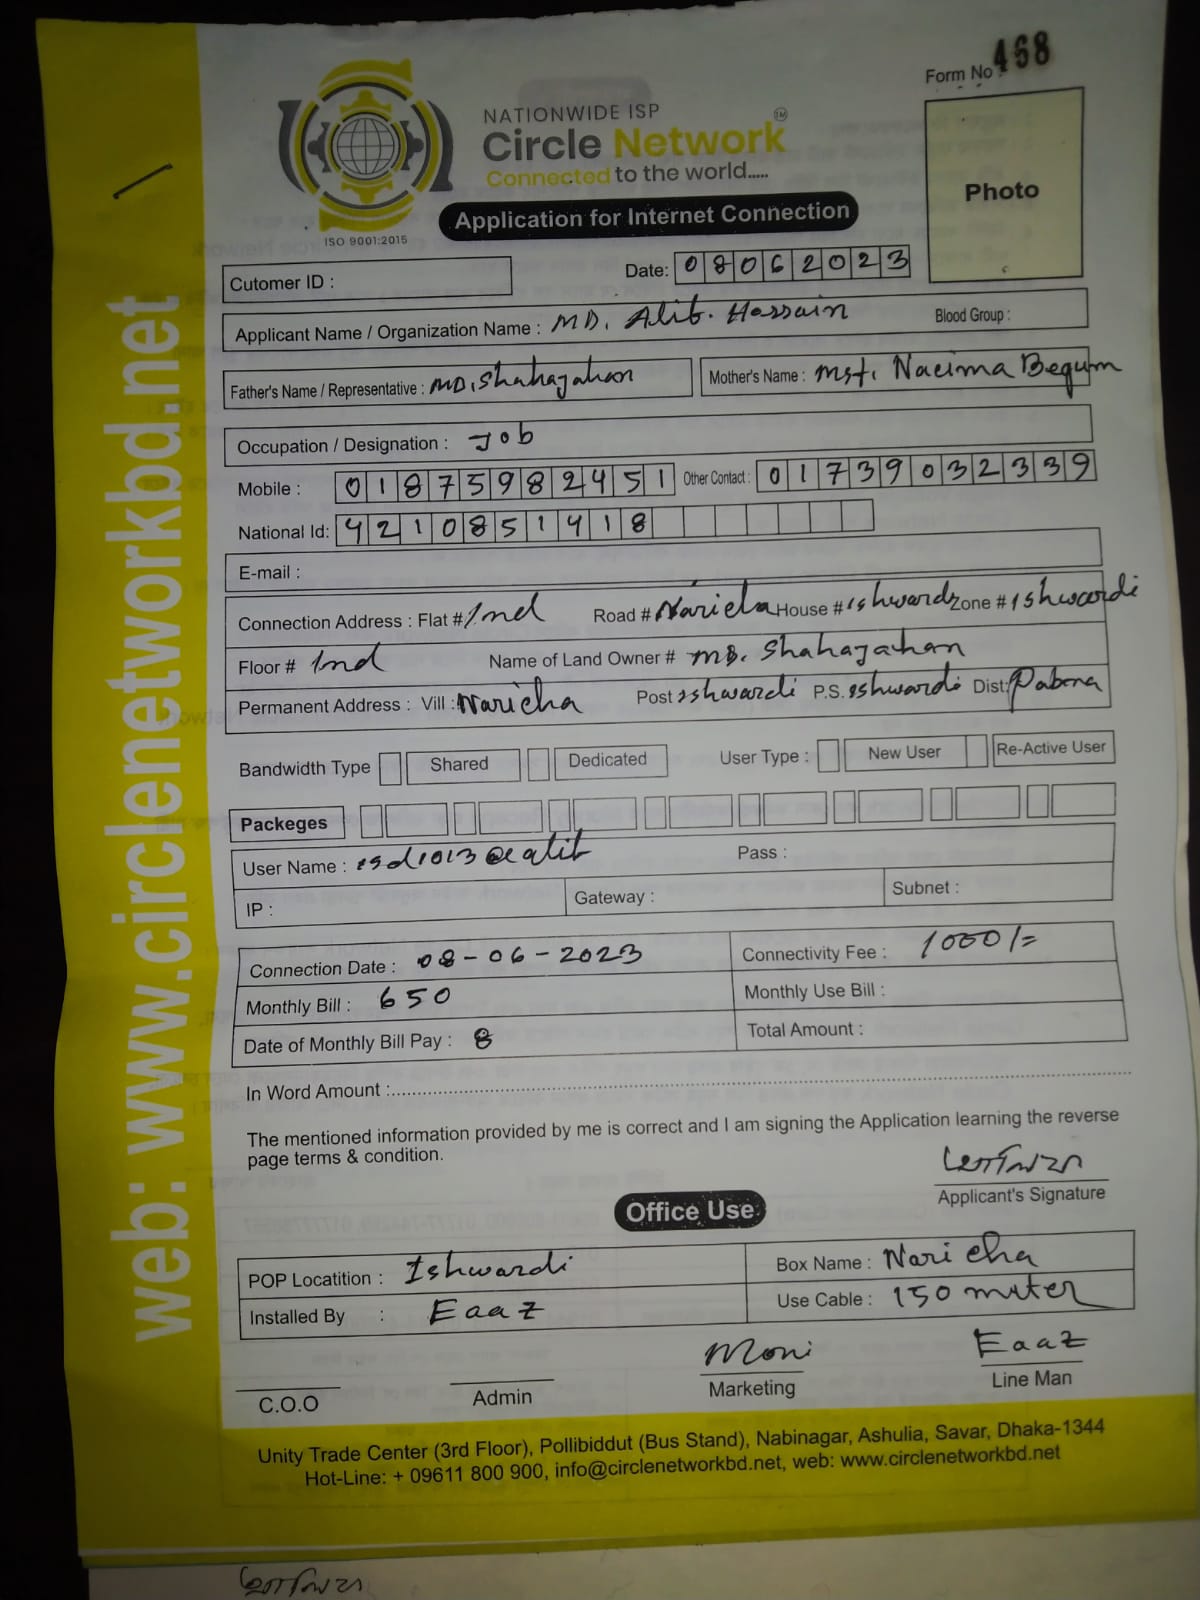 Form No 468
NATIONWIDE ISP
Circle Network TM
Connected to the world.....
ISO 9001:2015
Application for Internet Connection
Photo
web: www.circlenetworkbd.net
Cutomer ID :
Date: 08062023
Applicant Name / Organization Name : MD. Alib. Hossain
Blood Group :
Father's Name / Representative : MD. Shahajahan
Mother's Name : Mst. Naeima Begum
Occupation / Designation : Job
Mobile : 01875982451 Other Contact : 01739032339
National Id: 4210851418
E-mail :
Connection Address : Flat # 1nd Road # Naricha House # ishwardi Zone # ishwardi
Floor # 1nd Name of Land Owner # MD. Shahajahan
Permanent Address : Vill : Naricha Post ishwardi P.S. ishwardi Dist: Pabna
Bandwidth Type Shared Dedicated User Type : New User Re-Active User
Packeges
User Name : isd1013@alib Pass :
IP : Gateway : Subnet :
Connection Date : 08-06-2023 Connectivity Fee : 1000/=
Monthly Bill : 650 Monthly Use Bill :
Date of Monthly Bill Pay : 8 Total Amount :
In Word Amount :
The mentioned information provided by me is correct and I am signing the Application learning the reverse
page terms & condition.
Applicant's Signature
Office Use
POP Locatition : Ishwardi Box Name : Naricha
Installed By : Eaaz Use Cable : 150 muter
Moni Eaaz
C.O.O Admin Marketing Line Man
Unity Trade Center (3rd Floor), Pollibiddut (Bus Stand), Nabinagar, Ashulia, Savar, Dhaka-1344
Hot-Line: + 09611 800 900, info@circlenetworkbd.net, web: www.circlenetworkbd.net